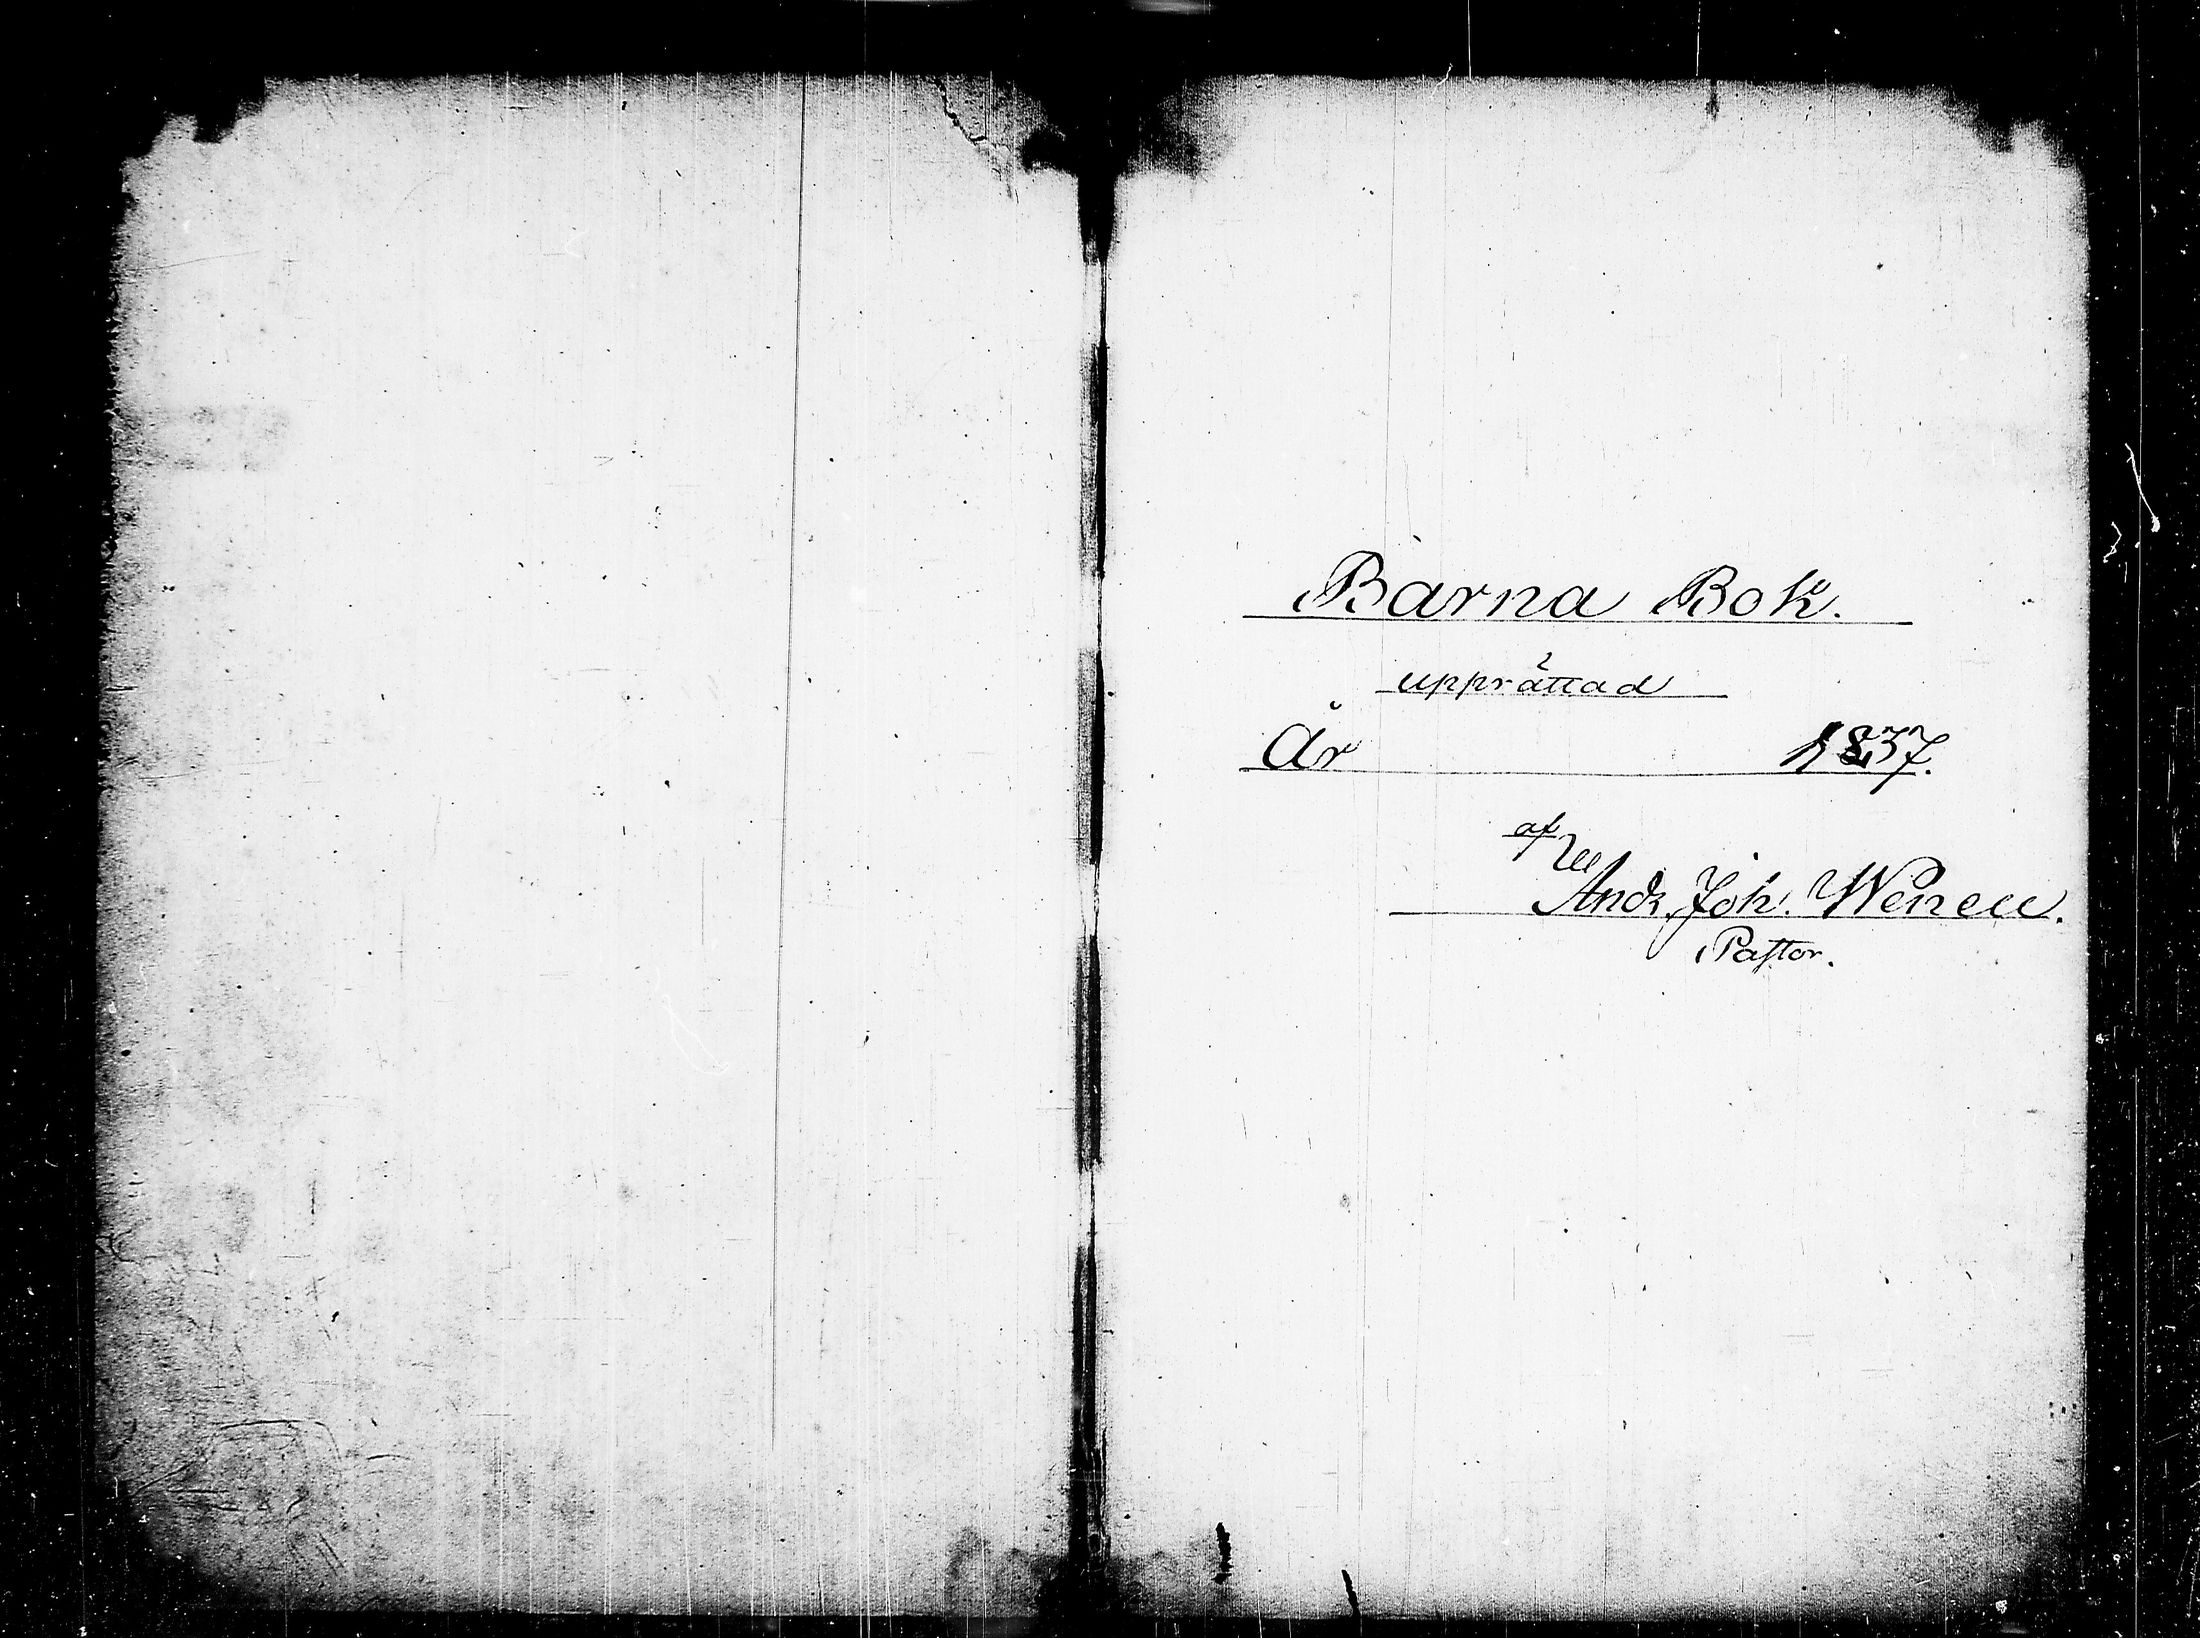 Barna Bok.
upprättad
År 1837.
af
And. Joh. Wenell.
Pastor.